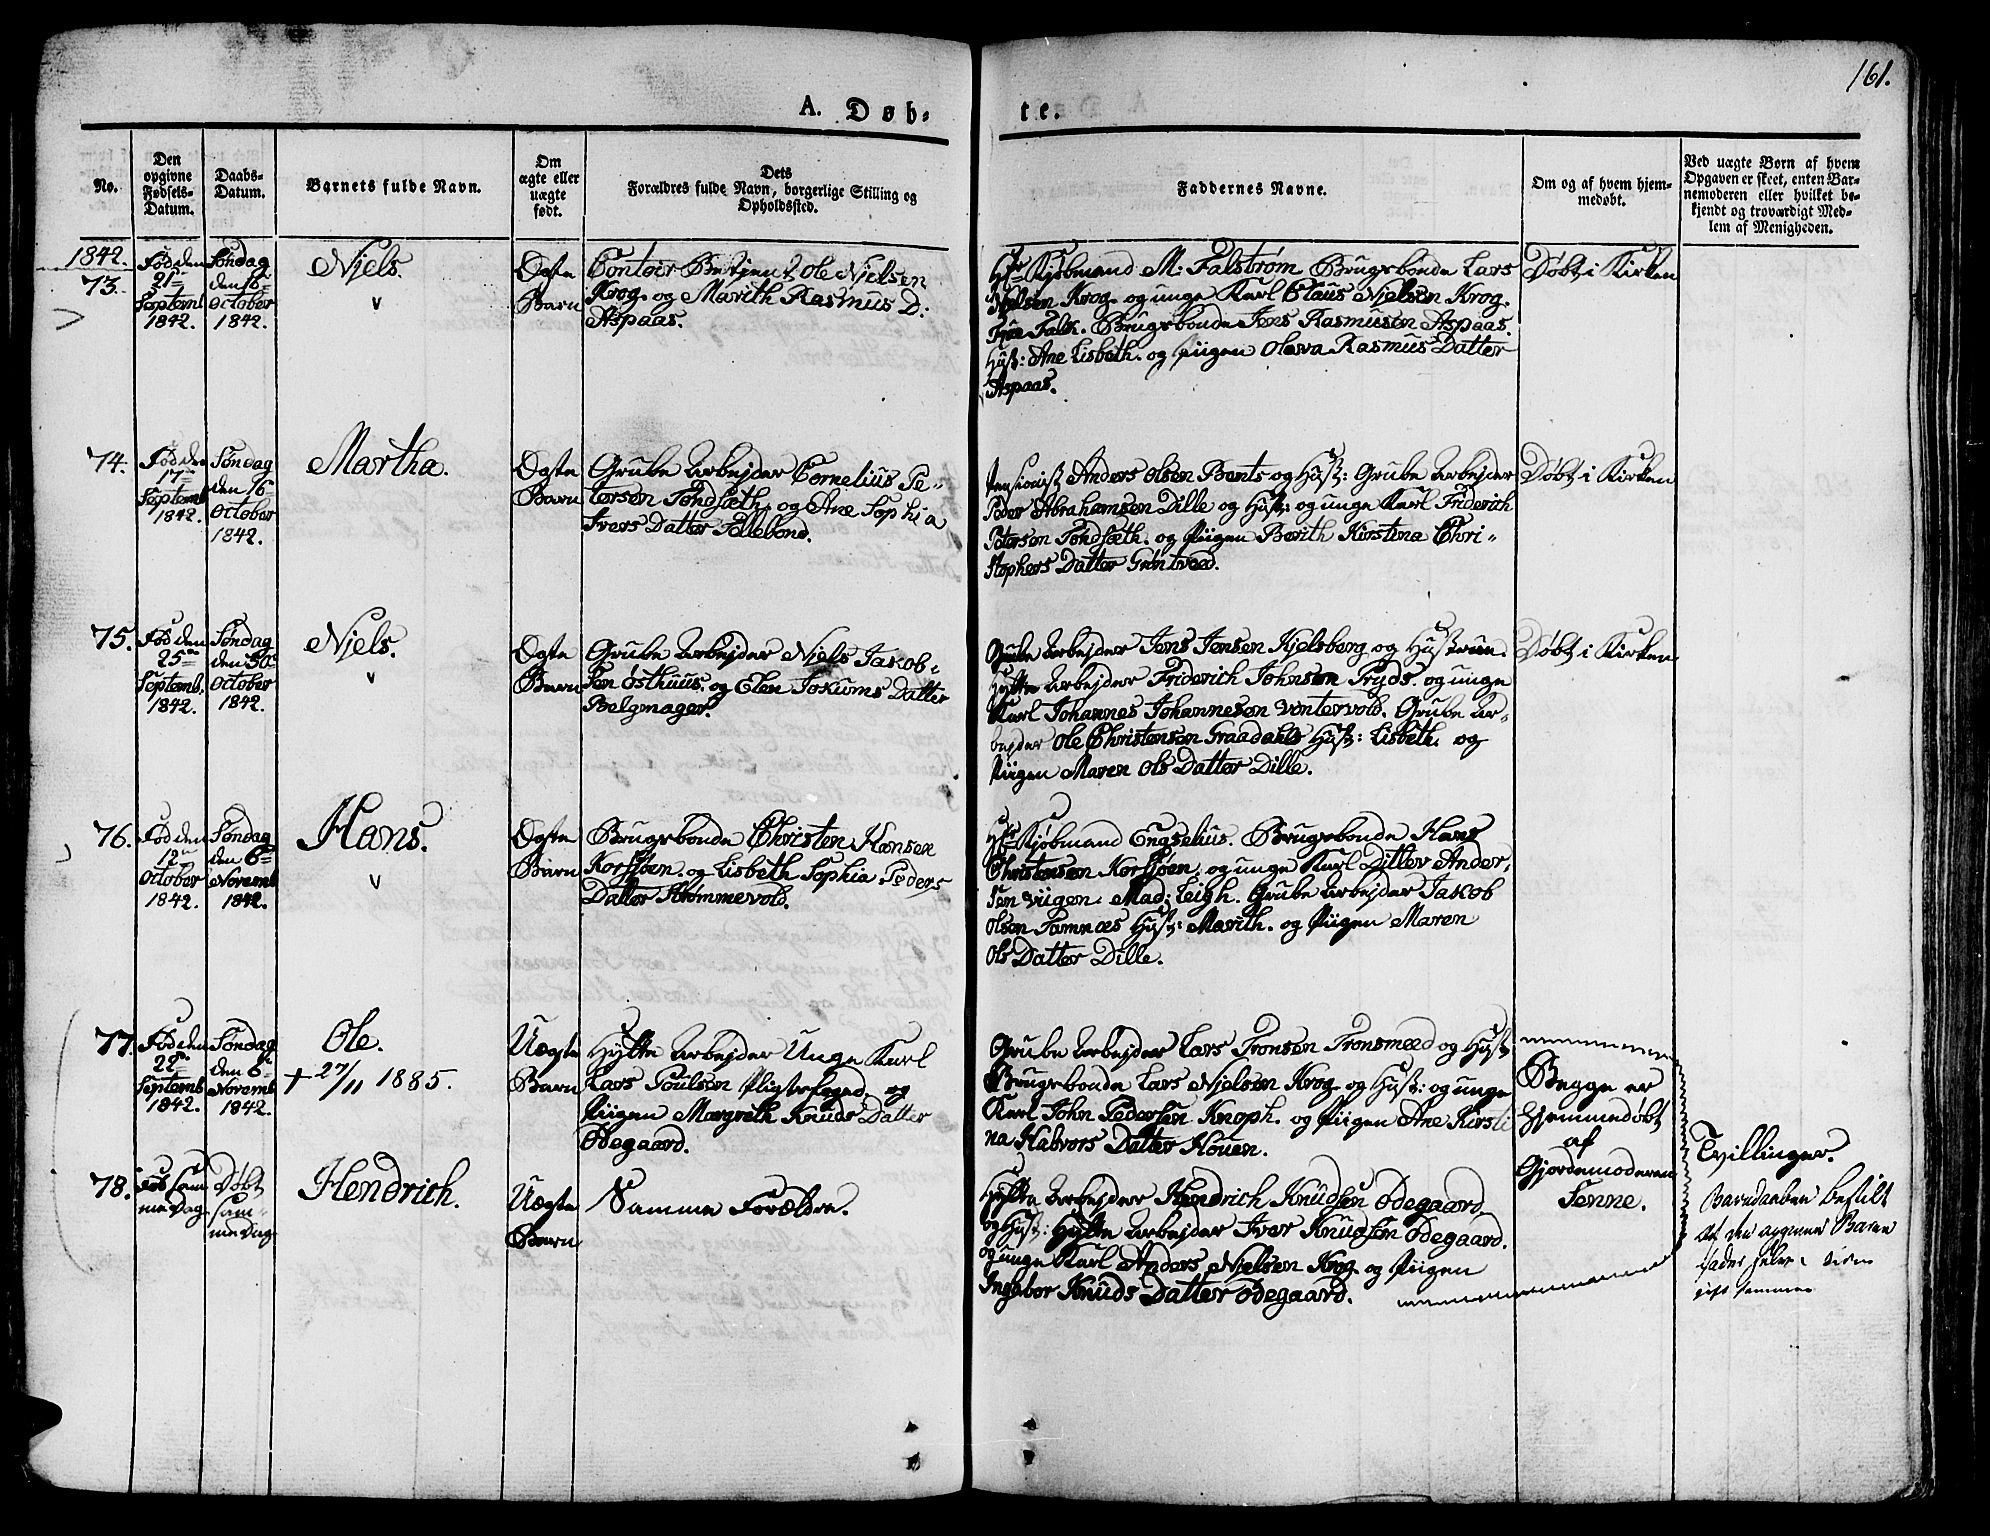 161.
A. Døb-
te.
No.
Den
opgivne
Fødsels-
Datum.
Daabs-
Datum.
Barnets fulde Navn.
Om
ægte eller
uægte
født.
Dets
Forældres fulde Navn, borgerlige Stilling og
Opholdssted.
Faddernes Navne.
Om og af hvem hjem-
medøbt.
Ved uægte Børn af hvem
Opgaven er skeet, enten Bar-
nemoderen eller hvilket be-
kjendt og troværdigt Med-
lem af Menigheden.
1842.
73.
Fød den
21de
Septemb.
1842.
Søndag
den 16de
October
1842.
Njels.
Ægte
Barn
Contoir Betjent Ole Njelsen
Krog. og Marith Rasmus D:
Aspaas.
Hr. Kjøbmand M: Falstrøm Brugsbonde Lars
Njelsen Krog. og unge Karl Claus Njelsen Krog.
Frue Falk. Brugsbonde Jens Rasmusen Aspaas.
Hust: Ane Lisbeth. og Piigen Olava Rasmus Datter
Aspaas.
Døbt i Kirken
74.
Fød den
17de
Septemb.
1842.
Søndag
den 16
October
1842.
Martha.
Ægte
Barn
Grube Arbejder Cornelius Pe-
tersen Tøndsæth. og Ane Sophia
Ivers Datter Sollebond.
Pensionist Anders Olsen Bents og Hust: Grube Arbejder
Peder Abrahamsen Dille og Hust: og unge Karl Friderich
Petersen Tøndsæth. og Piigen Berith Kirstina Chri-
stophers Datter Grøntvæd.
Døbt i Kirken
75.
Fød den
25de
Septemb.
1842.
Søndag
den 30te
October
1842.
Njels.
Ægte
Barn
Grube Arbejder Njels Jakob-
sen Østhuus. og Elen Jokums Datter
Belgmager.
Grube Arbejder Jens Jensen Hjelsberg og Hustruen.
Hytte Arbejder Friderich Johnsen Pryds. og unge
Karl Johannes Johannesøn Vintervold. Grube Ar-
bejder Ole Christensen Graadahls Hust: Lisbeth. og
Piigen Maren Ols Datter Dille.
Døbt i Kirken
76.
Fød den
12te
October
1842.
Søndag
den 6te
Novemb
1842.
Hans.
Ægte
Barn
Brugsbonde Christen Hansen
Korssjøen. og Lisbeth Sophia Peders
Datter Strømmevold.
Hr. Kjøbmand Engselius. Brugsbonde Hans
Christensen Korssjøen. og unge Karl Ditlev Ander-
sen Viigen. Mad: Leigh. Grube Arbejder Jakob
Olsen Tamnæs Hust: Marith. og Piigen Maren
Ols Datter Dille.
77.
Fød den
22de
Septemb
1842.
Søndag
den 6te
Novemb
1842.
Ole.
+ 27/11 1885.
Uægte
Barn
Hytte Arbejder Unge Karl
Lars Poulsen Pligstefaged. og
Piigen Margreth Knuds Datter
Ødegaard.
Grube Arbejder Lars Tronsen Tronsmoed og Hust
Brugsbonde Lars Njelsen Krog. og Hust: og unge
Karl John Pedersen Knoph. og Piigen Ane Kirsti
na Halvors Datter Houen.
Begge er
Hjemmedøbt
af
Gjordemoderen
Tenne.
78.
Fød sam
me Dag
Døbt
sam-
me Dag
Hendrich.
Uægte
Barn
Samme Forældre.
Hytte Arbejder Hendrich Knudsen Ødegaard
og Hust: Hytte Arbejder Iver Knudsen Ødegaard.
og unge Karl Anders Njelsen Krog. og Piigen
Ingebor Knuds Datter Ødegaard.
Tvillinger.
Barnedaaben bestilt
af den angivne Barne
fader selv